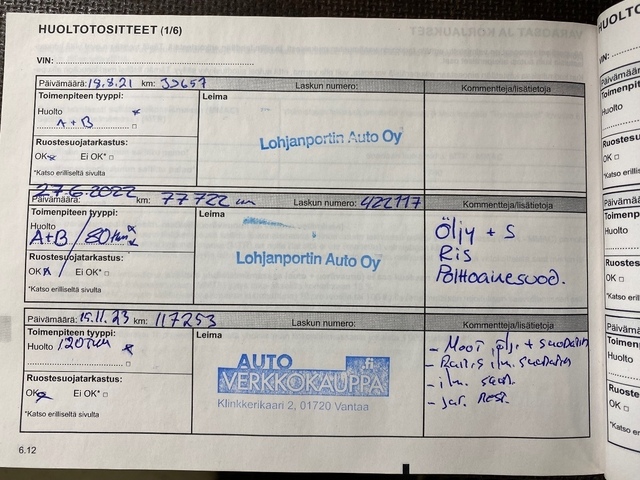 HUOLTOTOSITTEET (1/6)
VIN:
Päivämäärä: 18.8.21 km: 35657 Laskun numero: Kommentteja/lisätietoja
Toimenpiteen tyyppi: Leima
Huolto
A+B
Lohjanportin Auto Oy
Ruostesuojatarkastus:
OK Ei OK* □
*Katso erilliseltä sivulta
27.6.2022
Päivämäärä: km: 77722 km Laskun numero: 422117 Kommentteja/lisätietoja
Toimenpiteen tyyppi: Leima
Huolto
A+B / 80tkm
Öljy + S
Ris
Polttoainesuod.
Lohjanportin Auto Oy
Ruostesuojatarkastus:
OK Ei OK* □
*Katso erilliseltä sivulta
Päivämäärä: 15.11.23 km: 117253 Laskun numero: Kommentteja/lisätietoja
Toimenpiteen tyyppi: Leima
Huolto 120tkm
- Moot. öljy + suodatin
- Rais. ilm. suodatin
- ilm. suod.
- jar. nest.
AUTO .fi
VERKKOKAUPPA
Klinkkerikaari 2, 01720 Vantaa
Ruostesuojatarkastus:
OK Ei OK* □
*Katso erilliseltä sivulta
6.12
HUOLTO
VIN:
Päivämäärä
Toimenpit
Huolto
Ruostesu
OK □
*Katso er
Päivämä
Toimenp
Huolto
Ruostes
OK □
*Katso e
Päivämä
Toimen
Huolto
Ruoste
OK □
*Katso